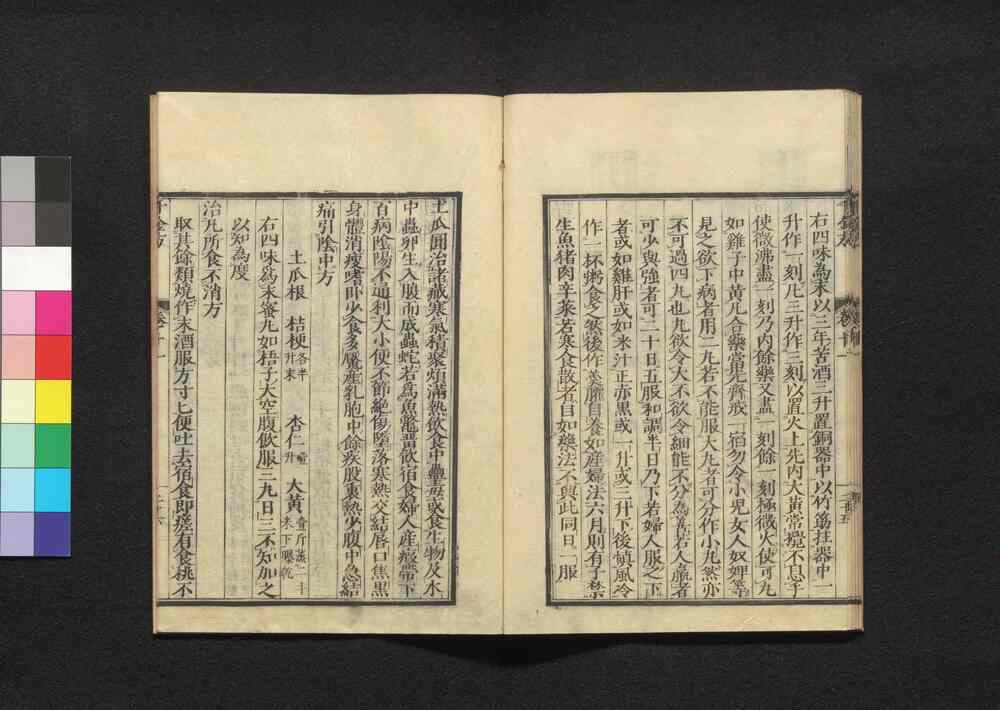 右四味爲末以三年苦酒三升置銅器中以竹筯拄器中一
升作一刻凡三升作三刻以置火上先内大黄常攪不息子
使微沸盡一刻乃内餘藥又盡一刻餘一刻極微火使可丸
如雞子中黄凡合藥當先齊戒一宿勿令小兒女人奴婢等
見之欲下病者用二丸若不能服大丸者可分作小丸然亦
不可過四丸也丸欲令大不欲令細能不分爲善若人羸者
可少與強者可二十日五服和調半日乃下若婦人服之下
者或如雞肝或如米汁正赤黑或一升或三升下後慎風冷
作一杯粥食之然後作羹臛自養如産婦法六月則有子禁
生魚猪肉辛菜若寒食散者自如藥法不與此同日一服
土瓜圓治諸藏寒氣積聚煩滿熱飲食中蠱毒或食生物及水
中蟲卵生入腹而成蟲蛇若爲魚鼈留飲宿食婦人産瘕帶下
百病陰陽不通利大小便不節絶傷墮落寒熱交結唇口焦黑
身體消瘦嗜卧少食多魘産乳胞中餘疾股裏熱少腹中急結
痛引陰中方
土瓜根 桔梗各半升末 杏仁壹升 大黄壹斤蒸二十末下曝乾
右四味爲末蜜丸如梧子大空腹飲服三丸日三不知加之
以知爲度
治凡所食不消方
取其餘類燒作末酒服方寸匕便吐去宿食即瘥有食桃不